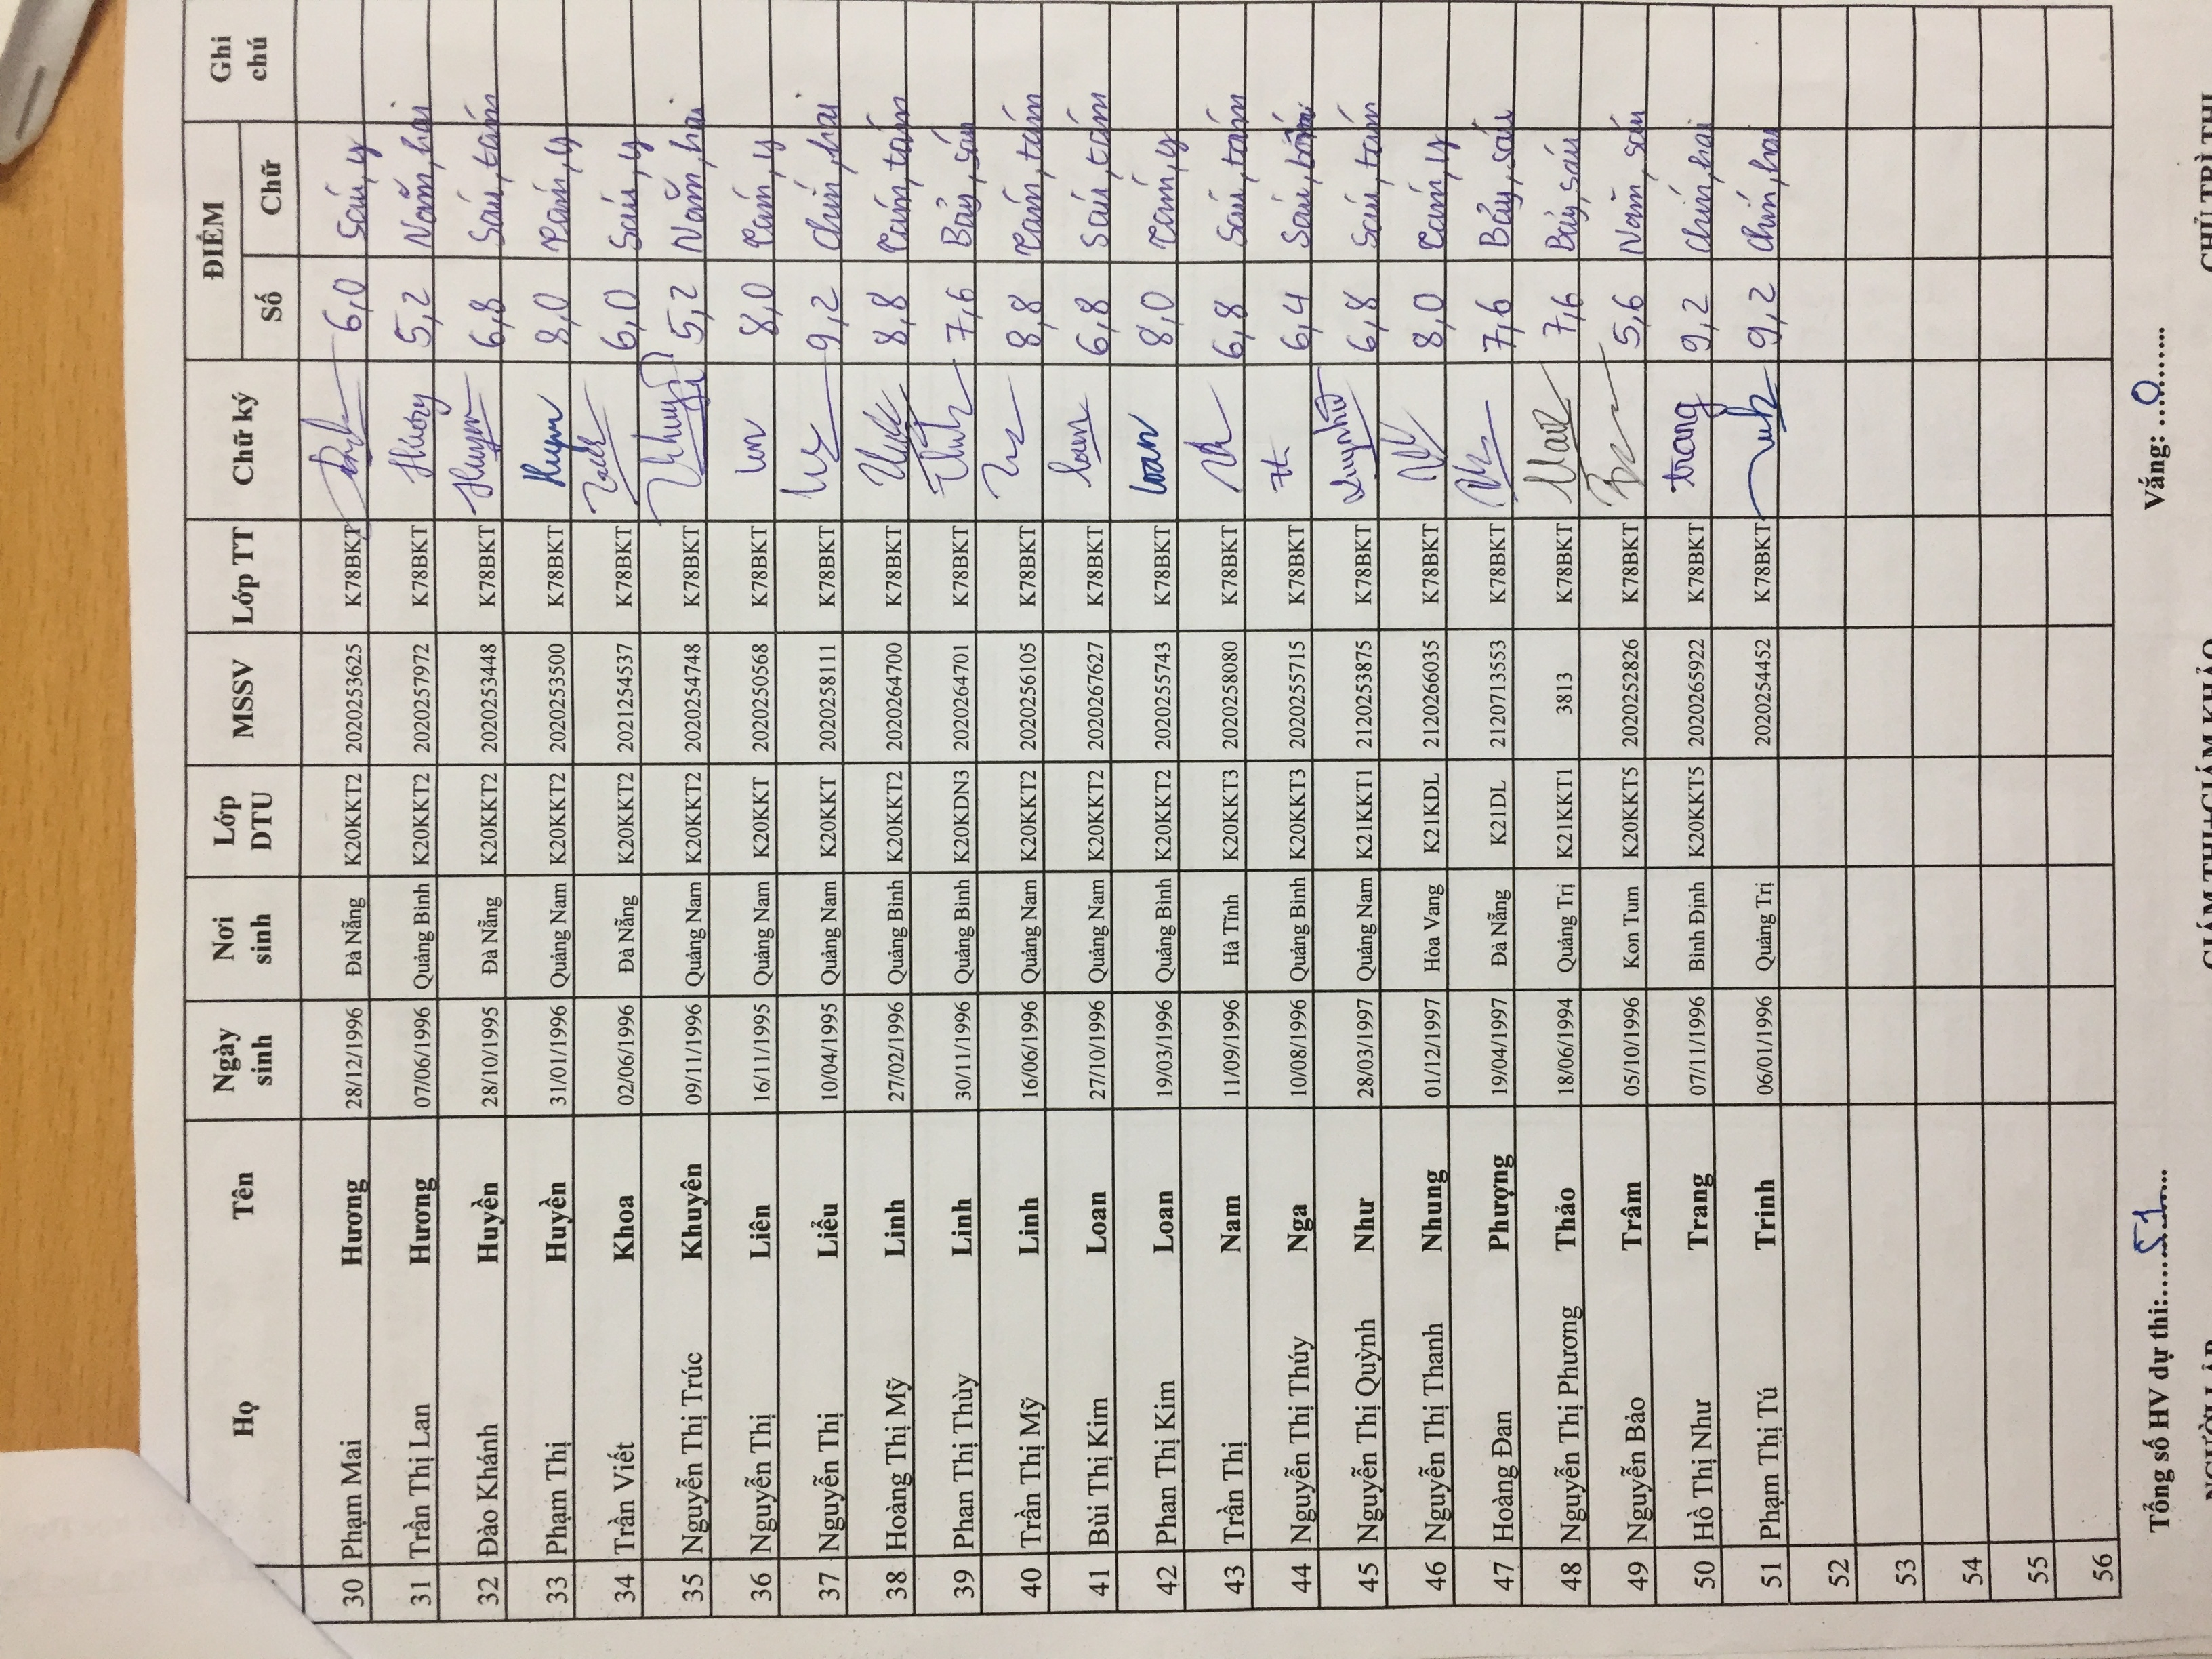 Họ Tên Ngày sinh Nơi sinh Lớp DTU MSSV Lớp TT Chữ ký ĐIỂM Số Chữ Ghi chú
30 Phạm Mai Hương 28/12/1996 Đà Nẵng K20KKT2 2020253625 K78BKT 6,0 Sáu, y
31 Trần Thị Lan Hương 07/06/1996 Quảng Bình K20KKT2 2020257972 K78BKT Hương 5,2 Năm, hai
32 Đào Khánh Huyền 28/10/1995 Đà Nẵng K20KKT2 2020253448 K78BKT Huyen 6,8 Sáu, tám
33 Phạm Thị Huyền 31/01/1996 Quảng Nam K20KKT2 2020253500 K78BKT Huyen 8,0 Tám, y
34 Trần Viết Khoa 02/06/1996 Đà Nẵng K20KKT2 2021254537 K78BKT 6,0 Sáu, y
35 Nguyễn Thị Trúc Khuyên 09/11/1996 Quảng Nam K20KKT2 2020254748 K78BKT 5,2 Năm, hai
36 Nguyễn Thị Liên 16/11/1995 Quảng Nam K20KKT 2020250568 K78BKT 8,0 Tám, y
37 Nguyễn Thị Liễu 10/04/1995 Quảng Nam K20KKT 2020258111 K78BKT 9,2 Chín, hai
38 Hoàng Thị Mỹ Linh 27/02/1996 Quảng Bình K20KKT2 2020264700 K78BKT 8,8 Tám, tám
39 Phan Thị Thùy Linh 30/11/1996 Quảng Bình K20KDN3 2020264701 K78BKT 7,6 Bảy, sáu
40 Trần Thị Mỹ Linh 16/06/1996 Quảng Nam K20KKT2 2020256105 K78BKT 8,8 Tám, tám
41 Bùi Thị Kim Loan 27/10/1996 Quảng Nam K20KKT2 2020267627 K78BKT loan 6,8 Sáu, tám
42 Phan Thị Kim Loan 19/03/1996 Quảng Bình K20KKT2 2020255743 K78BKT Loan 8,0 Tám, y
43 Trần Thị Nam 11/09/1996 Hà Tĩnh K20KKT3 2020258080 K78BKT 6,8 Sáu, tám
44 Nguyễn Thị Thúy Nga 10/08/1996 Quảng Bình K20KKT3 2020255715 K78BKT 6,4 Sáu, bốn
45 Nguyễn Thị Quỳnh Như 28/03/1997 Quảng Nam K21KKT1 2120253875 K78BKT Quynhnhư 6,8 Sáu, tám
46 Nguyễn Thị Thanh Nhung 01/12/1997 Hòa Vang K21KDL 2120266035 K78BKT 8,0 Tám, y
47 Hoàng Đan Phượng 19/04/1997 Đà Nẵng K21DL 2120713553 K78BKT 7,6 Bảy, sáu
48 Nguyễn Thị Phương Thảo 18/06/1994 Quảng Trị K21KKT1 3813 K78BKT 7,6 Bảy, sáu
49 Nguyễn Bảo Trâm 05/10/1996 Kon Tum K20KKT5 2020252826 K78BKT 5,6 Năm, sáu
50 Hồ Thị Như Trang 07/11/1996 Bình Định K20KKT5 2020265922 K78BKT trang 9,2 Chín, hai
51 Phạm Thị Tú Trinh 06/01/1996 Quảng Trị 2020254452 K78BKT 9,2 Chín, hai
52
53
54
55
56
Tổng số HV dự thi:.....51..... Vắng: ....0.......
NGƯỜI LẬP GIÁM THỊ+GIÁM KHẢO CHỦ TRÌ THI